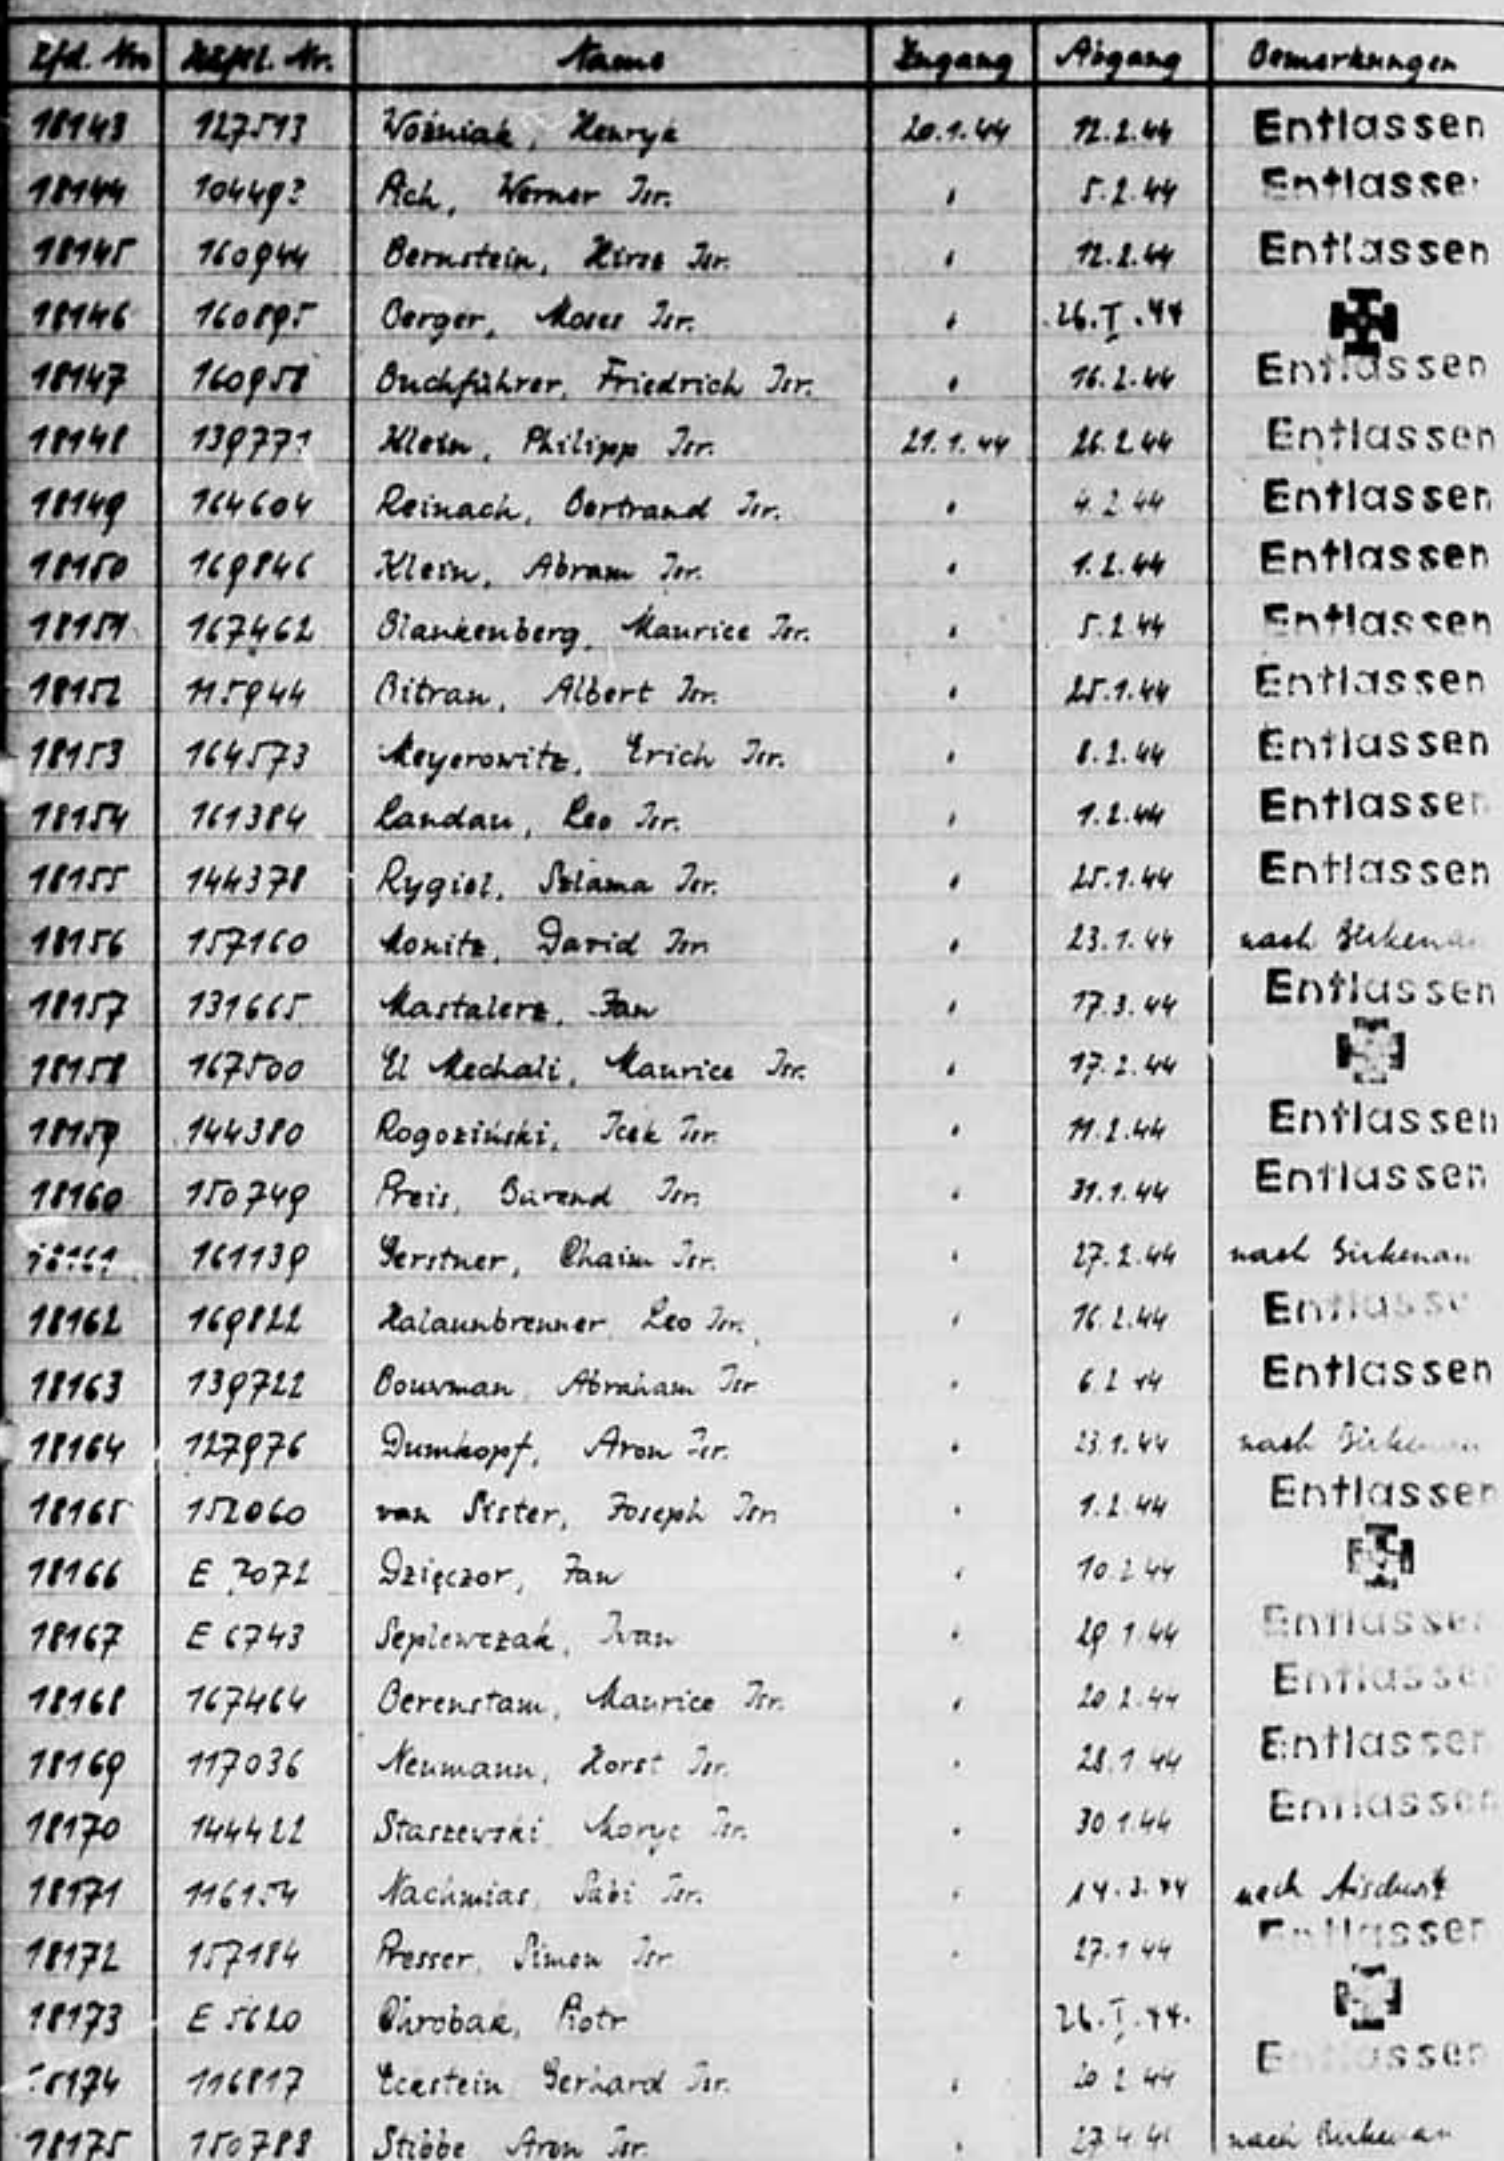 Lfd. Nr. Häftl. Nr. Name Zugang Abgang Bemerkungen
18143 127513 Woźniak, Henryk 20.1.44 12.2.44 Entlassen
18144 Ach, Werner Isr. " 5.2.44 Entlassen
18145 160944 Bernstein, Hirsz Isr. " 12.2.44 Entlassen
18146 160895 Berger, Moses Isr. " 26.I.44
18147 160958 Buchführer, Friedrich Isr. " 16.2.44 Entlassen
18148 139771 Klein, Philipp Isr. 21.1.44 26.2.44 Entlassen
18149 164604 Reinach, Bertrand Isr. " 4.2.44 Entlassen
18150 169846 Klein, Abram Isr. " 1.2.44 Entlassen
18151 167462 Blankenberg, Maurice Isr. " 5.2.44 Entlassen
18152 115944 Bitran, Albert Isr. " 25.1.44 Entlassen
18153 164573 Meyerowitz, Erich Isr. " 8.2.44 Entlassen
18154 161384 Landau, Leo Isr. " 1.2.44 Entlassen
18155 144378 Rygiel, Szlama Isr. " 25.1.44 Entlassen
18156 157160 Monitz, David Isr. " 23.1.44 nach Birkenau
18157 131665 Mastalerz, Jan " 17.3.44 Entlassen
18158 167500 El Mechali, Maurice Isr. " 17.2.44
18159 144380 Rogoziński, Icek Isr. " 11.2.44 Entlassen
18160 150749 Preis, Barend Isr. " 31.1.44 Entlassen
18161 161139 Gerstner, Chaim Isr. " 27.2.44 nach Birkenau
18162 169822 Halaunbrenner Leo Isr. " 16.2.44 Entlassen
18163 139722 Bouwman, Abraham Isr. " 6.2.44 Entlassen
18164 127976 Dumkopf, Aron Isr. " 23.1.44 nach Birkenau
18165 152060 van Sister, Joseph Isr. " 1.2.44 Entlassen
18166 E Dzięczor, Jan " 10.2.44
18167 E 6743 Seplewczak, Iwan " 29.1.44 Entlassen
18168 167464 Berenstam, Maurice Isr. " 20.2.44 Entlassen
18169 117036 Neumann, Horst Isr. " 28.1.44 Entlassen
18170 144422 Staszewski Moryc Isr. " 30.1.44 Entlassen
18171 116154 Nachmias, Sabi Isr. " 14.3.44 nach
18172 157184 Presser, Simon Isr. " 27.1.44 Entlassen
18173 E 5620 Chrobak, Piotr 26.I.44.
18174 116817 Eckstein Gerhard Isr. " 20.2.44 Entlassen
18175 150788 Stibbe Aron Isr. " nach Birkenau